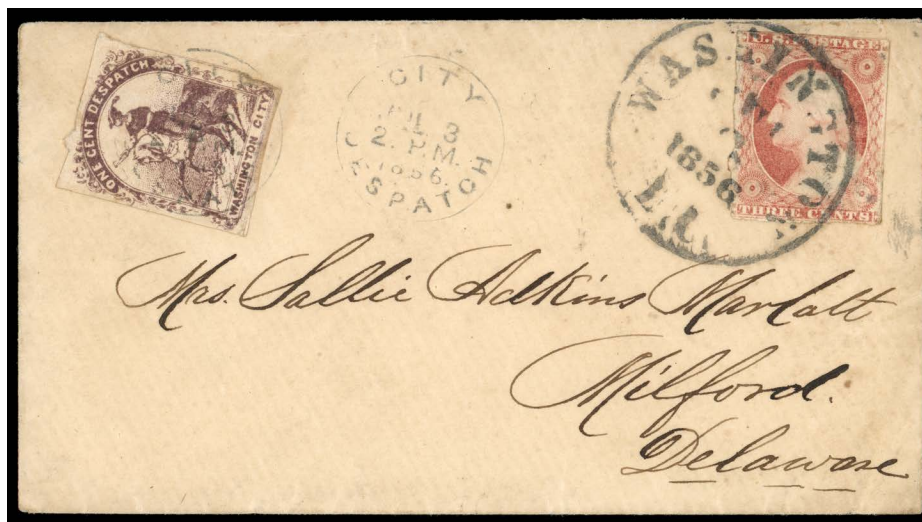 ONE CENT DESPATCH
WASHINGTON CITY
CITY
3
2 P.M.
1856.
DESPATCH
WASHINGTON
1856
U.S. POSTAGE
THREE CENTS
Mrs. Sallie Adkins Marcalt
Milford.
Delaware